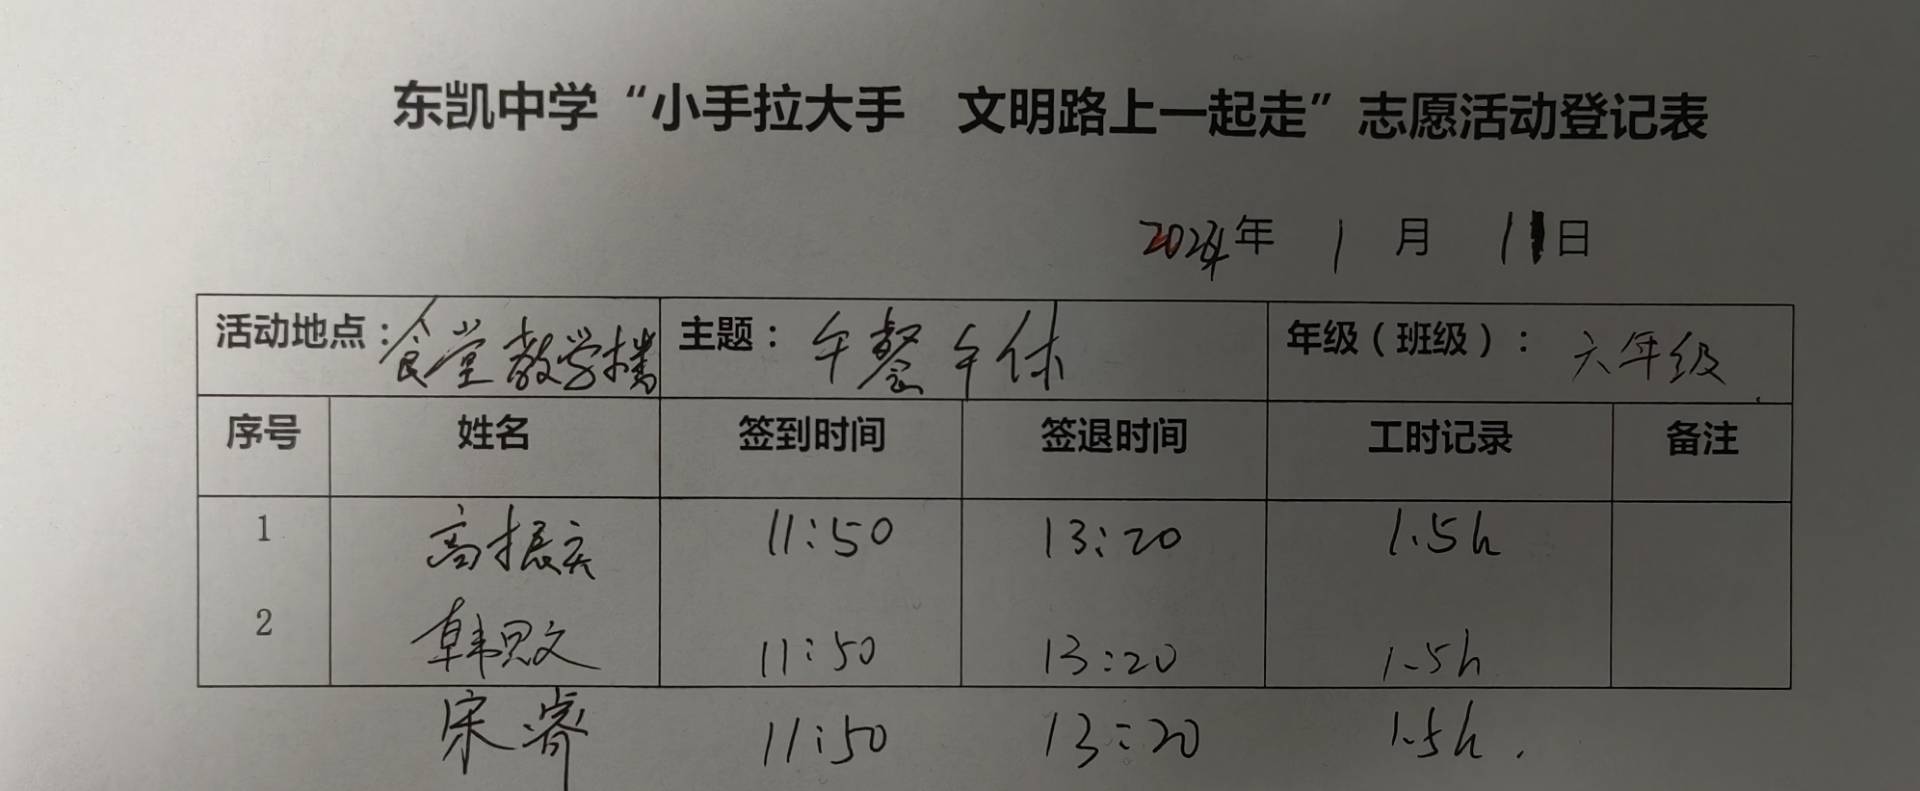 东凯中学“小手拉大手 文明路上一起走”志愿活动登记表
2024年 1 月 11日
活动地点：食堂教学楼 主题：午餐午休 年级（班级）：六年级
序号 姓名 签到时间 签退时间 工时记录 备注
1 高振宾 11:50 13:20 1.5h
2 韩思文 11:50 13:20 1.5h
宋睿 11:50 13:20 1.5h.